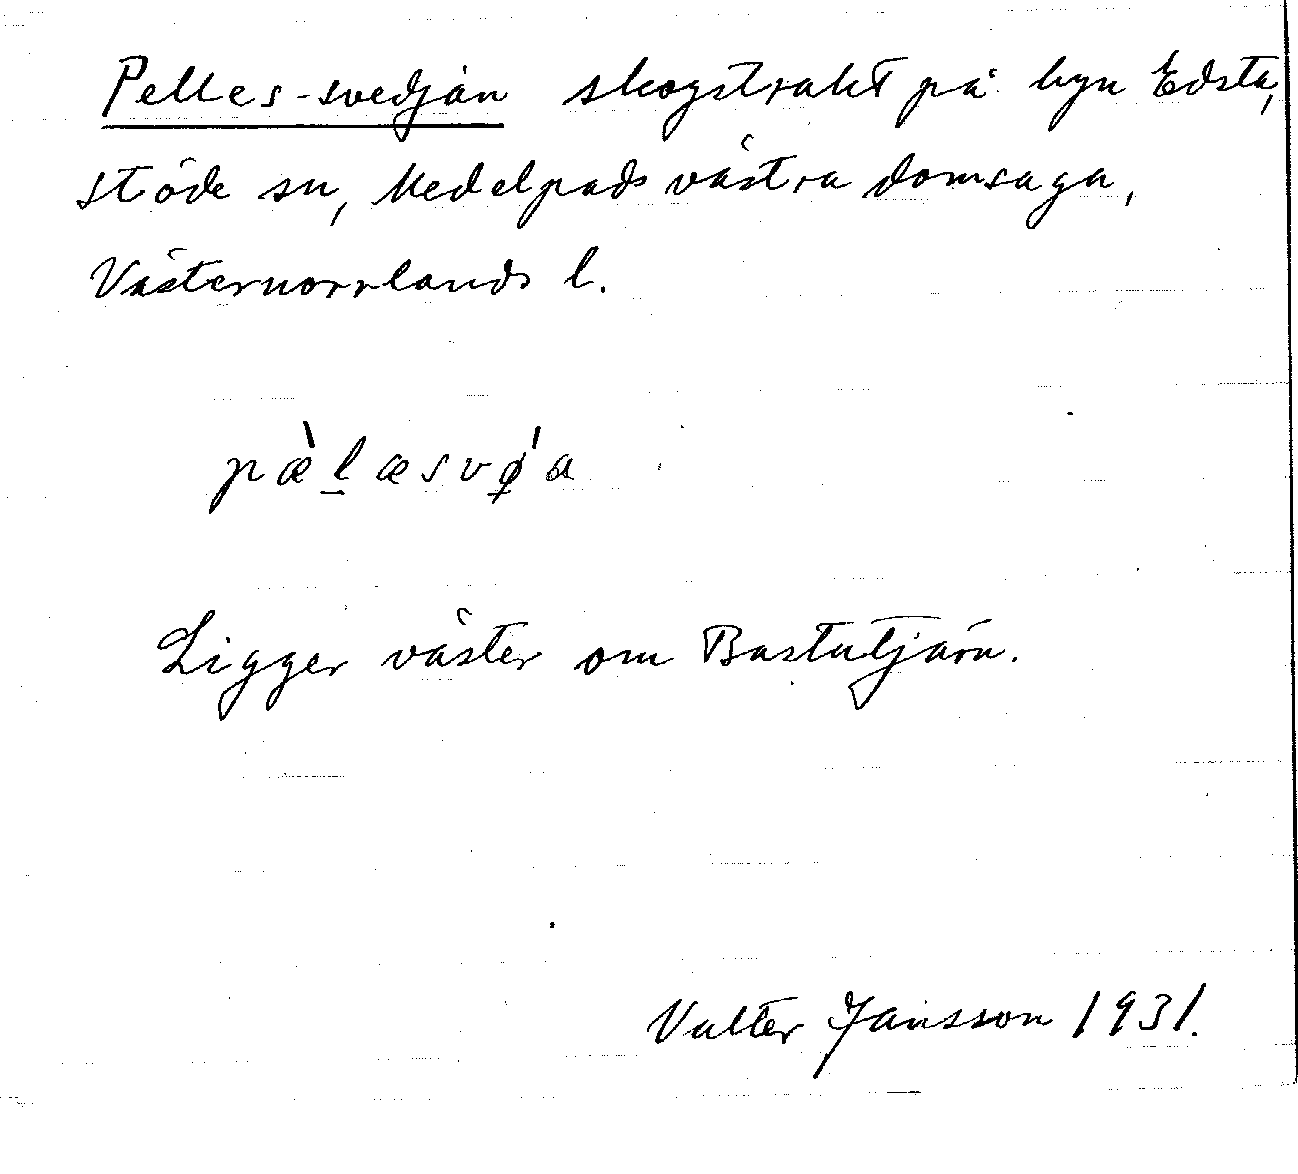 Pelles-svedjan skogstrakt på byn Edsta,
Stöde sn, Medelpads västra domsaga,
Västernorrlands l.
pæ̀l̲æsvǿa
Ligger väster om Bastutjärn.
Valter Jansson 1931.